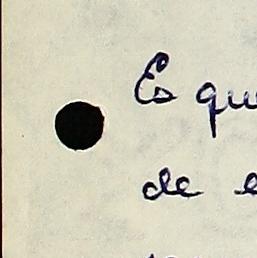 Es qu
de e